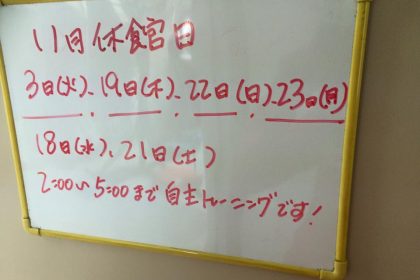 11月休館日
3日(火)、19日(木)、22日(日)、23日(月)
18日(水)、21日(土)
2:00〜5:00まで自主トレーニングです!